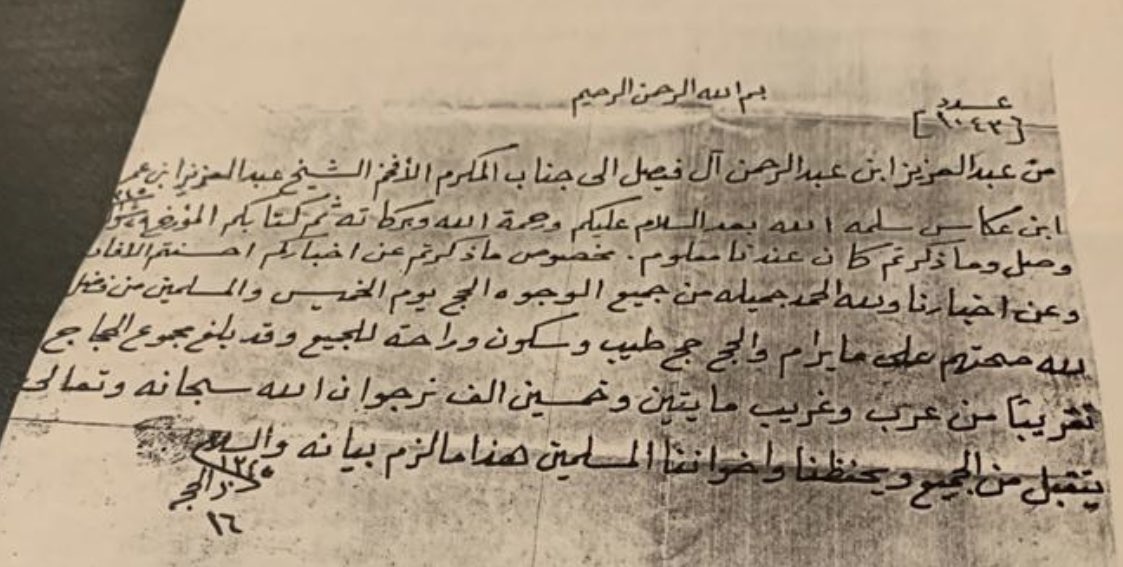 بسم الله الرحمن الرحيم
عدد
[١٠٤٣]
من عبد العزيز ابن عبد الرحمن آل فيصل الى جناب المكرم الأفخم الشيخ عبد العزيز ابن عمر
ابن عكاس سلمه الله بعد السلام عليكم ورحمة الله وبركاته ثم كتابكم المؤرخ
وصل وما ذكرتم كان عندنا معلوم. بخصوص ما ذكرتم عن اخباركم احسنتم الافاده
وعن اخبارنا ولله الحمد جميله من جميع الوجوه الحج يوم الخميس والمسلمين من فضل
لله صحتهم على ما يرام والحج حج طيب وسكون وراحة للجميع وقد بلغ مجموع الحجاج
تقريباً من عرب وغريب مايتين وخمسين الف نرجوا ان الله سبحانه وتعالى
يتقبل من الجميع ويحفظنا واخواننا المسلمين هذا مالزم بيانه والسلام
١٣٤٥
الحجر
١٦